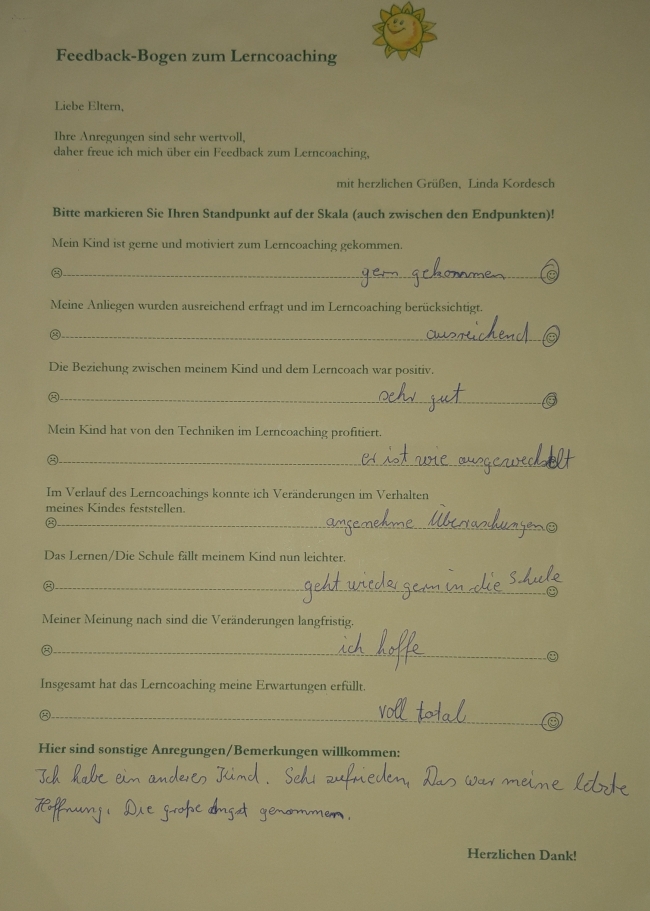 Feedback-Bogen zum Lerncoaching
Liebe Eltern,
Ihre Anregungen sind sehr wertvoll,
daher freue ich mich über ein Feedback zum Lerncoaching,
mit herzlichen Grüßen, Linda Kordesch
Bitte markieren Sie Ihren Standpunkt auf der Skala (auch zwischen den Endpunkten)!
Mein Kind ist gerne und motiviert zum Lerncoaching gekommen.
gern gekommen
Meine Anliegen wurden ausreichend erfragt und im Lerncoaching berücksichtigt.
ausreichend
Die Beziehung zwischen meinem Kind und dem Lerncoach war positiv.
sehr gut
Mein Kind hat von den Techniken im Lerncoaching profitiert.
er ist wie ausgewechselt
Im Verlauf des Lerncoachings konnte ich Veränderungen im Verhalten
meines Kindes feststellen.
angenehme Überraschungen
Das Lernen/Die Schule fällt meinem Kind nun leichter.
geht wieder gern in die Schule
Meiner Meinung nach sind die Veränderungen langfristig.
ich hoffe
Insgesamt hat das Lerncoaching meine Erwartungen erfüllt.
voll total
Hier sind sonstige Anregungen/Bemerkungen willkommen:
Ich habe ein anderes Kind. Sehr zufrieden, Das war meine letzte
Hoffnung. Die große Angst genommen.
Herzlichen Dank!